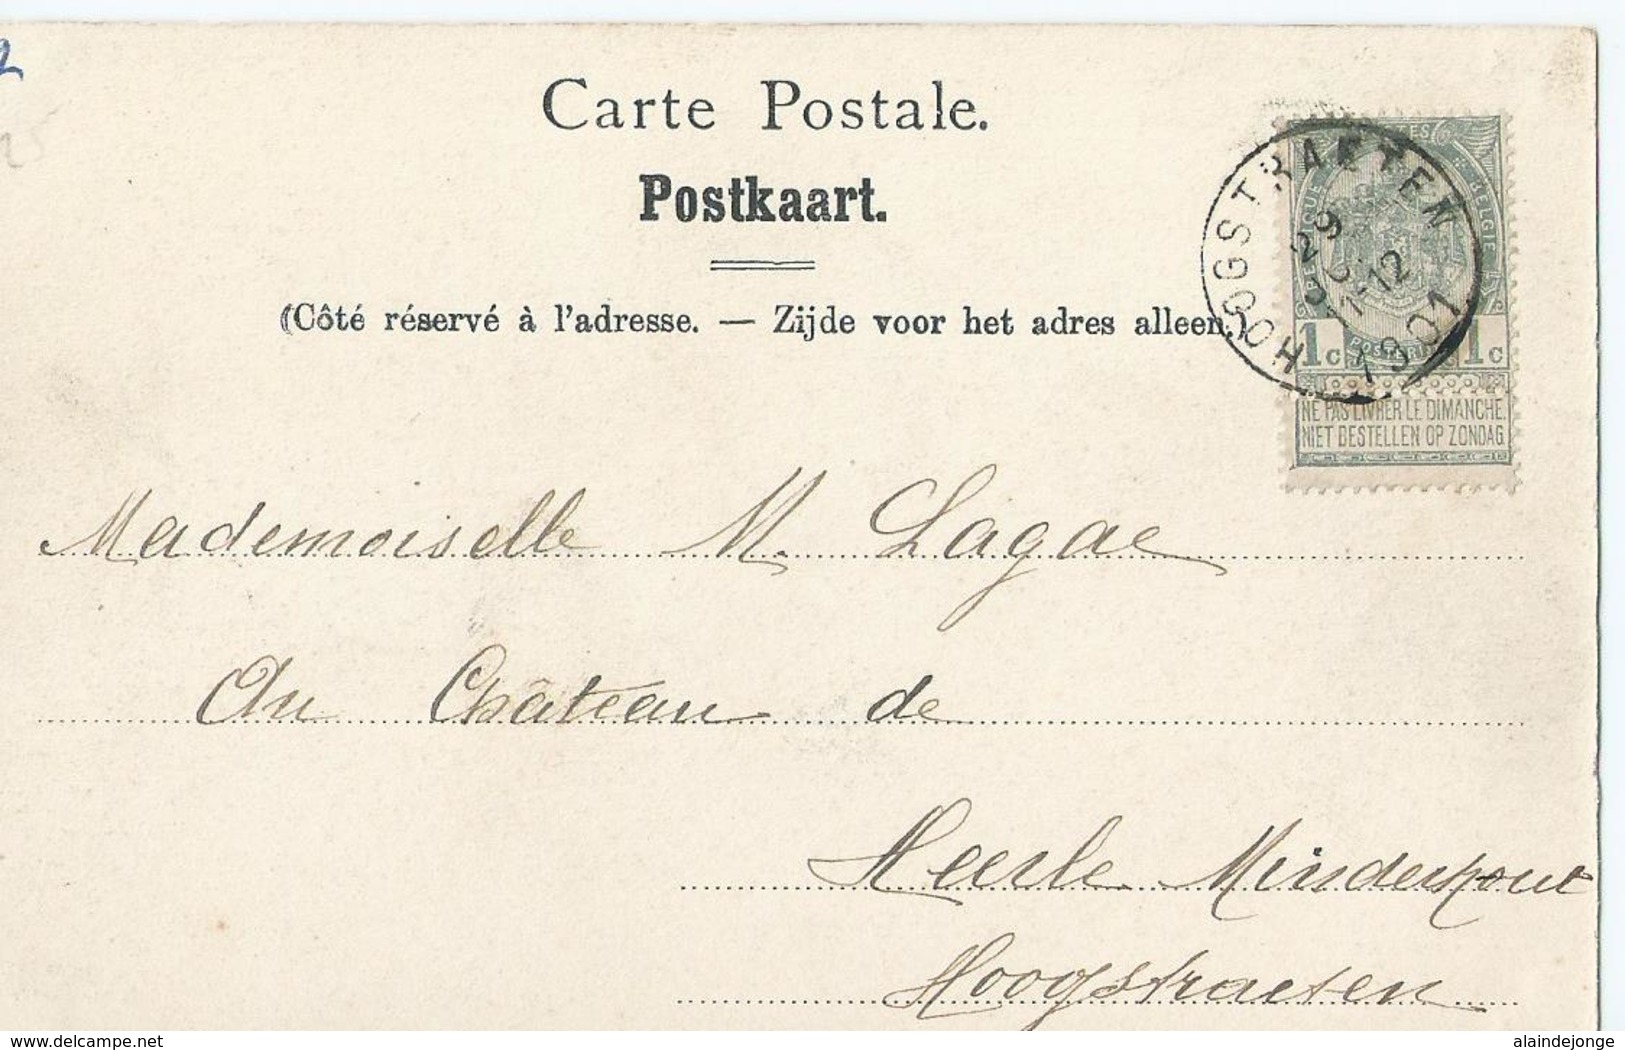 Carte Postale.
Postkaart.
(Côté réservé à l'adresse. — Zijde voor het adres alleen.)
HOOGSTRAETEN
29
11-12
1901
BELGIE
1c 1c
NE PAS LIVRER LE DIMANCHE.
NIET BESTELLEN OP ZONDAG
Mademoiselle M. Lagae
Au Château de
Heerle Minderhout
Hoogstraeten
delcampe.net
alaindejonge